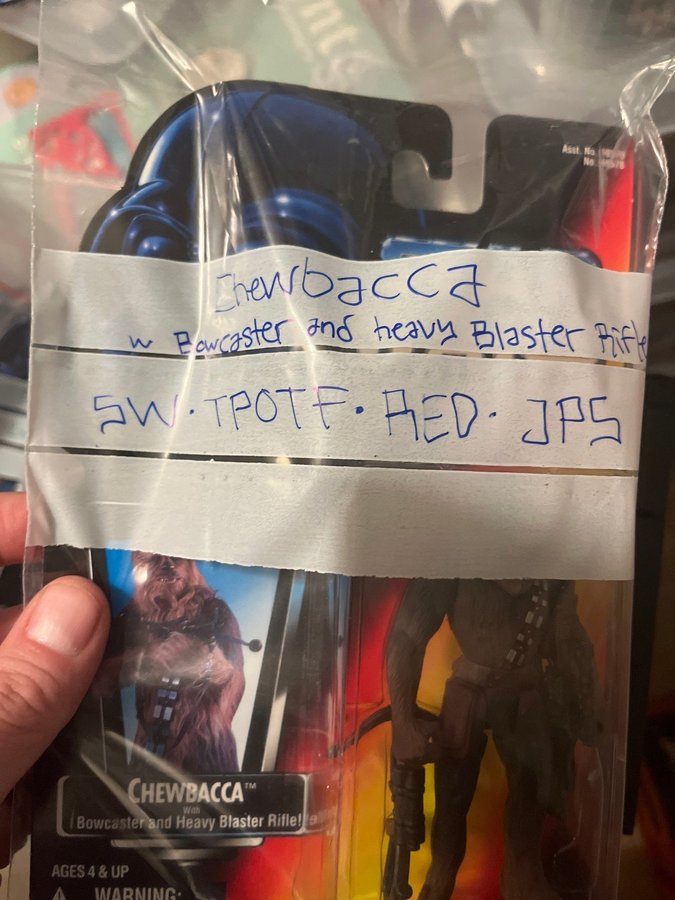 Asst. No.
No.
Chewbacca
w Bowcaster and heavy Blaster Rifle
SW · TPOTF · RED · JPS
CHEWBACCA™
With
Bowcaster and Heavy Blaster Rifle!
AGES 4 & UP
WARNING: